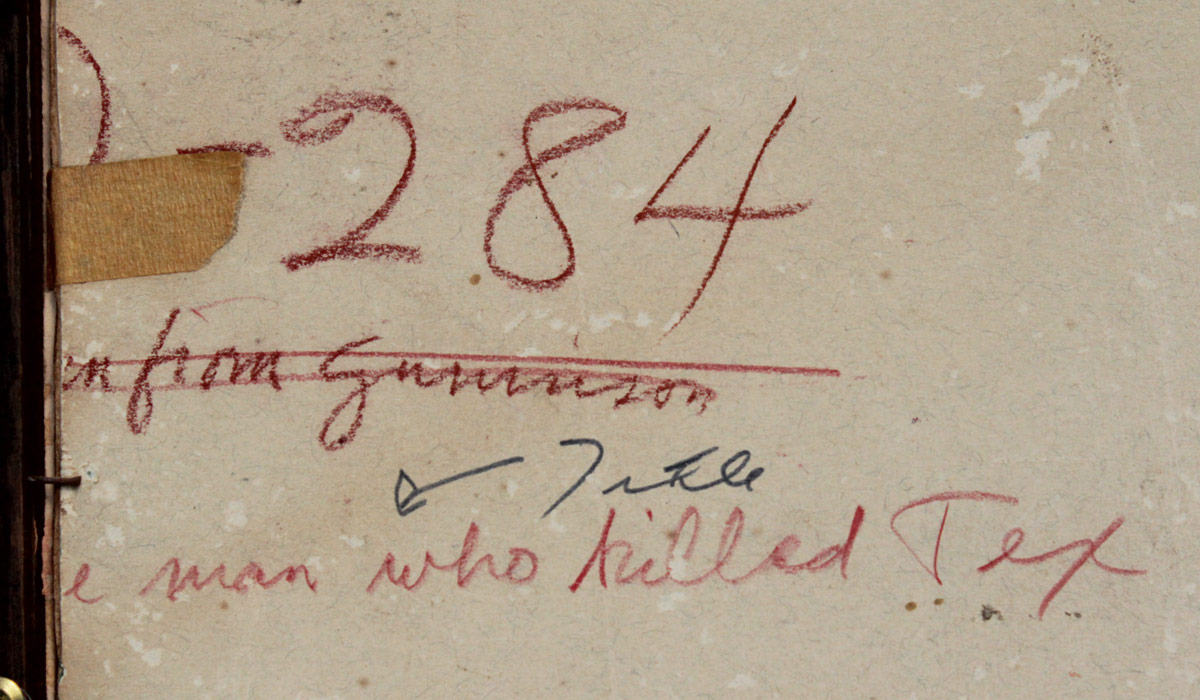 -284
from Gunnison
Title
e man who killed Tex